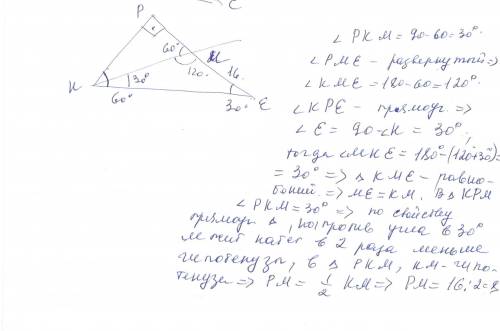 C
P
60°
M
120°
16.
К
30°
60°
30°
E
∠ PKM = 90-60=30°
∠ PME - развернутый =>
∠ KME = 180-60=120°
∠ KPE - прямоуг. =>
∠ E = 90-∠K = 30°,
тогда ∠MKE = 180°-(120+30)=
= 30° => △ KME - равно-
=> ME=KM. В △ KPM
∠ PKM = 30° => по свойству
прямоуг △, напротив угла в 30°
лежит катет в 2 раза меньше
гипотенузы, в △ PKM, KM-гипо-
тенуза => PM = 1/2 KM => PM = 16:2=8